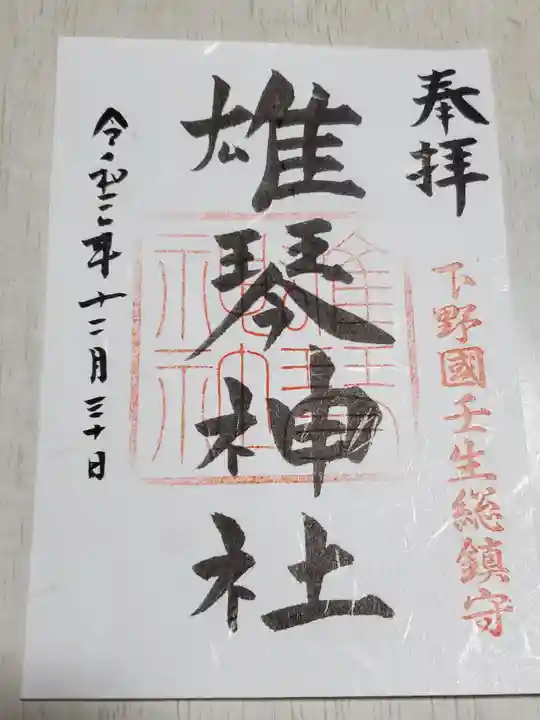 奉拝
下野國壬生総鎮守
雄琴神社
令和二年十二月三十日